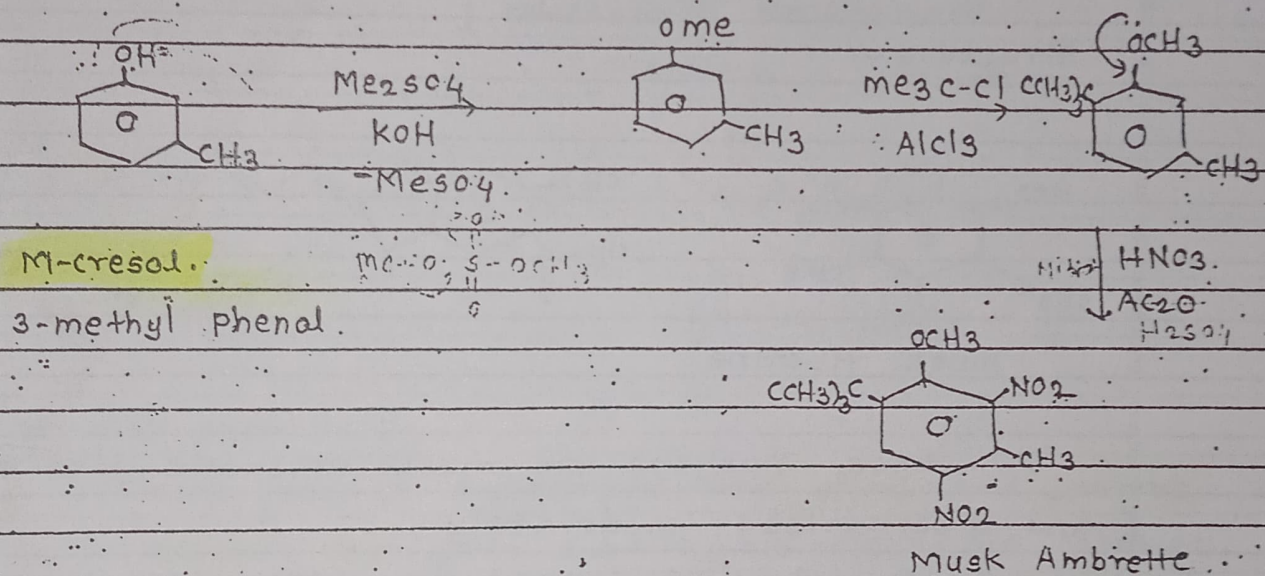 OH
CH3
Me2SO4
KOH
-MeSO4
OMe
CH3
Me3C-Cl
AlCl3
ÖCH3
C(CH3)3C
CH3
M-cresol.
3-methyl phenal.
me-O S-OCH3
O
O
HNO3.
AC2O
H2SO4
OCH3
C(CH3)3C
NO2
CH3
NO2
Musk Ambrette